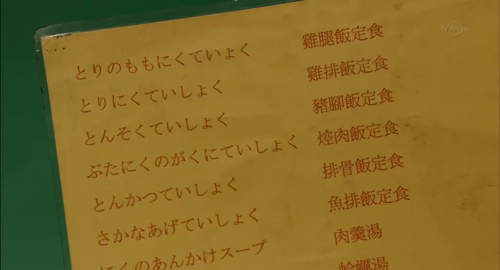 とりのももにくていしょく 雞腿飯定食
とりにくていしょく 雞排飯定食
とんそくていしょく 豬腳飯定食
ぶたにくのがくにていしょく 焢肉飯定食
とんかつていしょく 排骨飯定食
さかなあげていしょく 魚排飯定食
にくのあんかけスープ 肉羹湯
蛤蠣湯